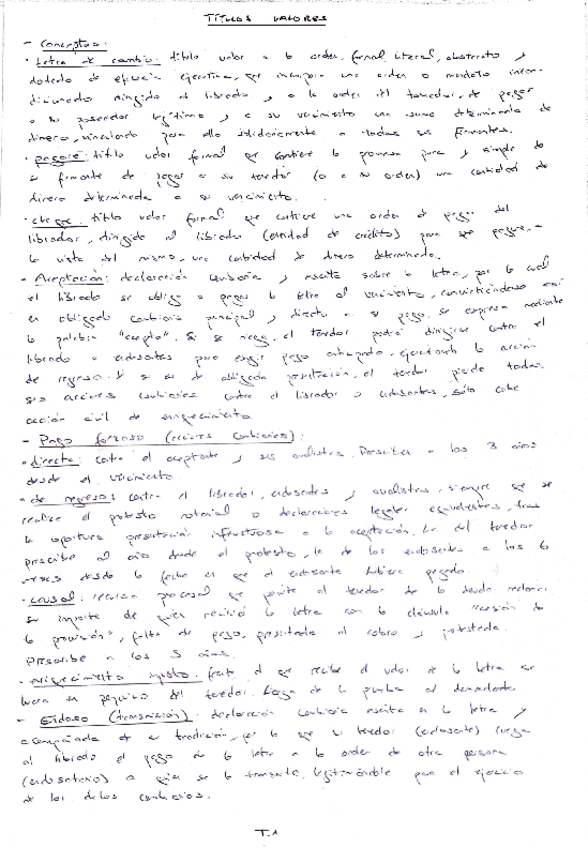 TÍTULOS VALORES
- Conceptos:
· Letra de cambio: título valor a la orden, formal, literal, abstracto y
dotado de eficacia ejecutiva, que incorpora una orden o mandato incon-
dicionado dirigido al librado, a la orden del tomador, de pagar
a su poseedor legítimo y a su vencimiento una suma determinada de
dinero, vinculando para ello solidariamente a todos sus firmantes.
· pagaré: título valor formal que contiene la promesa pura y simple de
su firmante de pagar a su tenedor (o a su orden) una cantidad de
dinero determinada a su vencimiento.
· cheque: título valor formal que contiene una orden de pago del
librador, dirigido al librado (entidad de crédito) para que pague, a
la vista del mismo, una cantidad de dinero determinada.
- Aceptación: declaración cambiaria y escrita sobre la letra, por la cual
el librado se obliga a pagar la letra al vencimiento, convirtiéndose así
en obligado cambiario principal y directo a su pago, se expresa mediante
la palabra "acepto". Si se niega, el tenedor podrá dirigirse contra el
librador o endosantes para exigir pago anticipado, ejecutando la acción
de regreso. Y si es de obligada presentación, el tenedor pierde todas
sus acciones cambiarias contra el librador y endosantes, sólo cabe
acción civil de enriquecimiento.
- Pago forzoso (acciones cambiarias):
· directa: contra el aceptante y sus avalistas. Prescribe a los 3 años
desde el vencimiento
· de regreso: contra el librador, endosantes y avalistas, siempre que se
realice el protesto notarial o declaraciones legales equivalentes, tras
la oportuna presentación infructuosa a la aceptación. La del tenedor
prescribe al año desde el protesto, la de los endosantes a los 6
meses desde la fecha en que el endosante hubiere pagado.
· causal: recurso procesal que permite al tenedor de la deuda reclamar
su importe de quien recibió la letra con la cláusula "cesión de
la provisión", falta de pago, presentada al cobro y protestada.
Prescribe a los 5 años.
· enriquecimiento injusto: frente al que recibe el valor de la letra se
lucra en perjuicio del tenedor. Carga de la prueba al demandante
- Endoso (transmisión): declaración cambiaria escrita en la letra y
acompañada de su tradición, por la que su tenedor (endosante) ruega
al librado el pago de la letra a la orden de otra persona
(endosatario) a quien se la transmite, legitimándole para el ejercicio
de los dchos cambiarios.
T.1